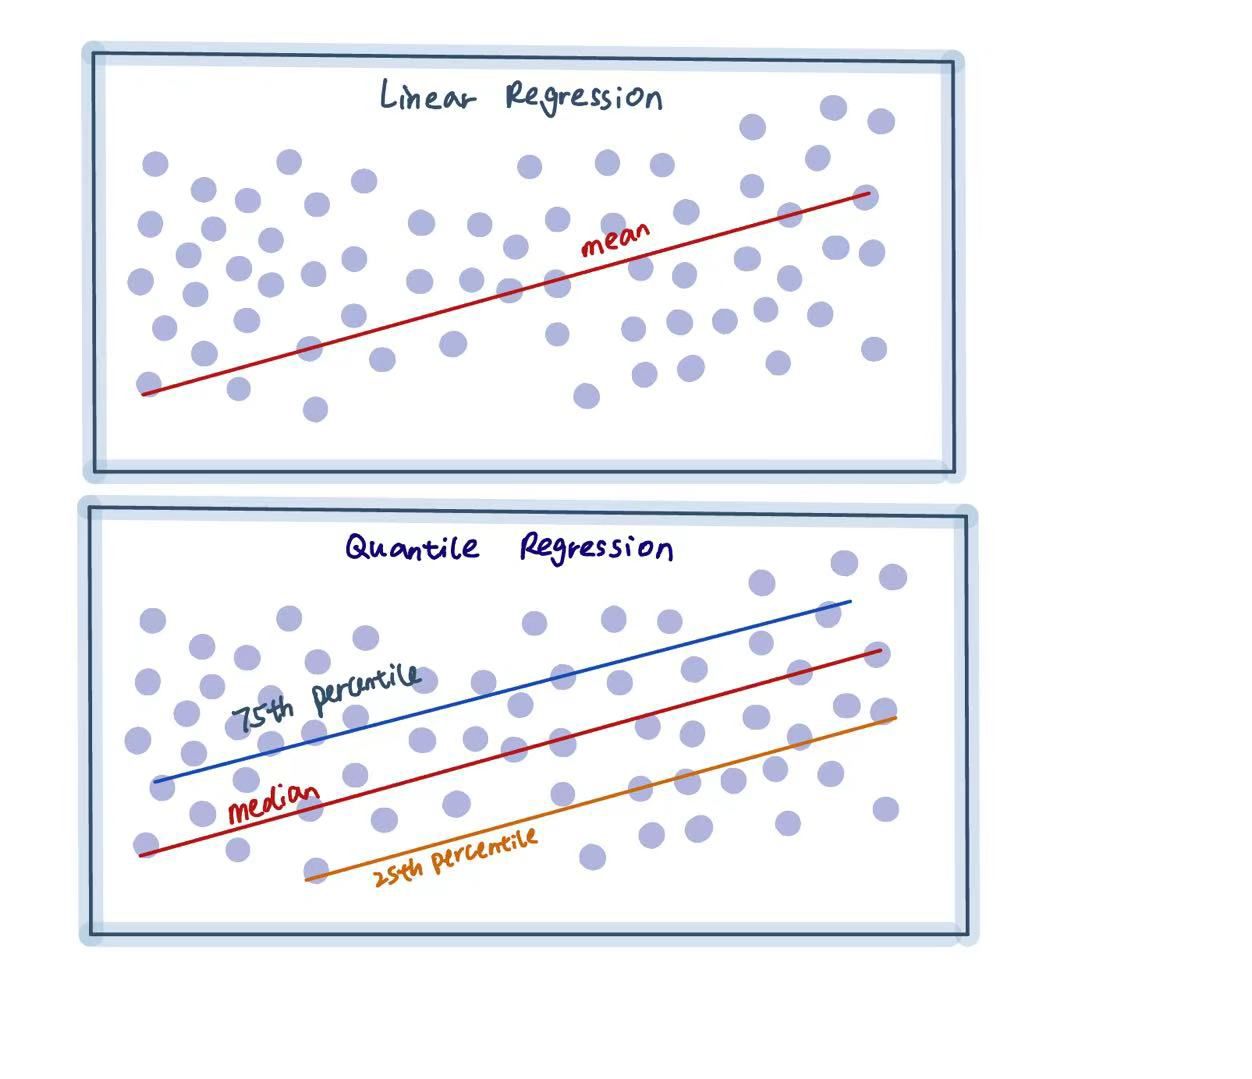 Linear Regression
mean
Quantile Regression
75th percentile
median
25th percentile